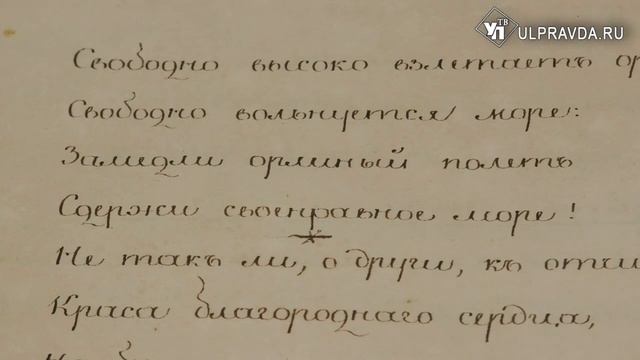 УП ТВ ULPRAVDA.RU
Свободно высоко взлетаетъ ор
Свободно вольнуется море:
Замедли орлиный полетъ
Сдержи своенравное море!
Не такъ ли, о други, къ отчи
Краса благороднаго сердца,